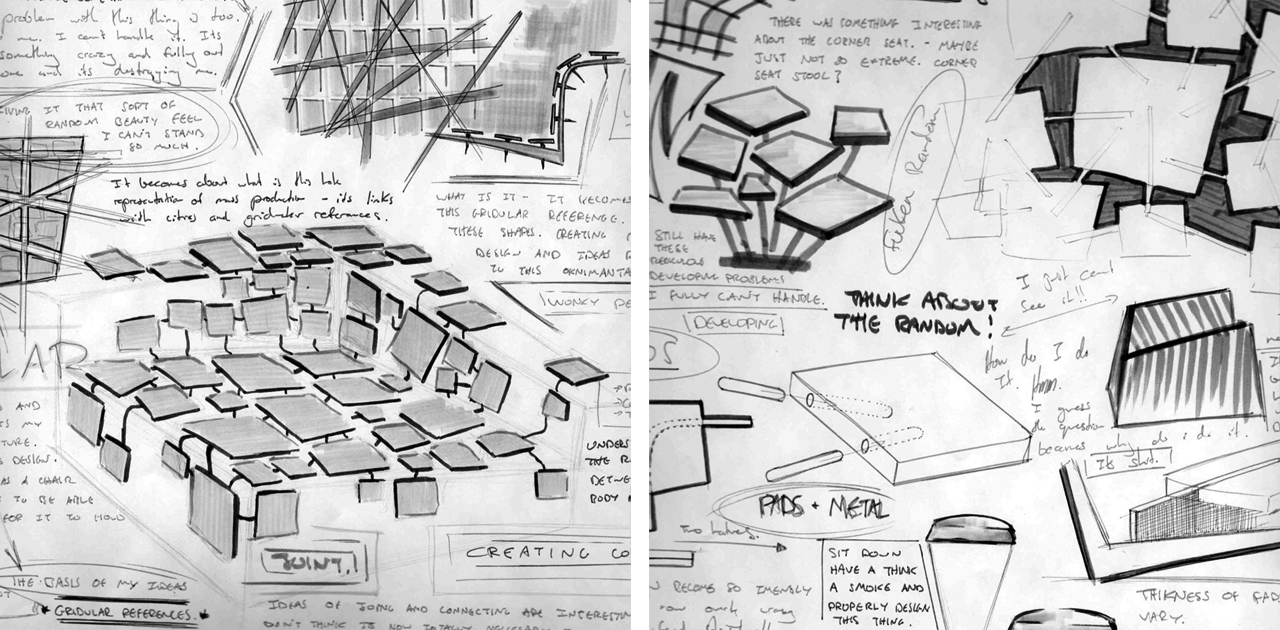 problem with this thing is too.
me. I can't handle it. Its
something crazy and fully out
and its destroying me.
GIVING IT THAT SORT OF
RANDOM BEAUTY FEEL
I CAN'T STAND
SO MUCH.
It becomes about what is this
representation of mass production - its links
with cities and gridular references.
WHAT IS IT - IT BECOMES
THIS GRIDULAR REFERENCE.
THESE SHAPES. CREATING
DESIGN AND IDEAS
TO THIS
WONKY
LAR
AND
MY
DESIGN.
AS A CHAIR
TO BE ABLE
FOR IT TO HOLD
UNDERS
THE R
BETWE
BODY
JOINT!
CREATING CO
THE BASIS OF MY IDEAS
GRIDULAR REFERENCES.
IDEAS OF JOING AND CONNECTING ARE INTERESTIN
DON'T THINK IS NOW TOTALLY NECESSARY
THERE WAS SOMETHING INTERESTING
ABOUT THE CORNER SEAT. - MAYBE
JUST NOT SO EXTREME. CORNER
SEAT STOOL?
Random
STILL HAVE
THESE
RIDICULOUS
DEVELOPING PROBLEMS
I FULLY CAN'T HANDLE.
DEVELOPING
THINK ABOUT
THE RANDOM!
I just cant
see it!!
How do I do
It. Hmm.
I guess
the question
becomes why do i do it.
Its shit.
PADS + METAL
Two halves.
SIT DOWN
HAVE A THINK
A SMOKE AND
PROPERLY DESIGN
THIS THING.
BECOME SO IMENSLY
THIKNESS OF PAD
VARY.